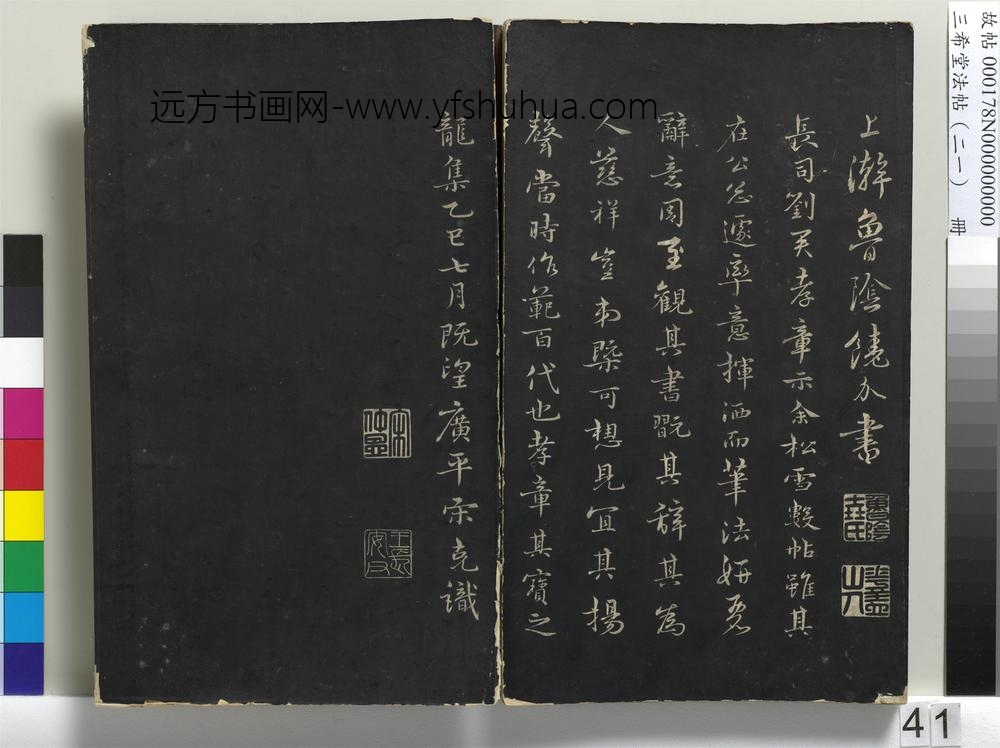 上澣魯陰饒介書
長司劉君孝章示余松雪數帖雖其
在公忩遽率意揮洒而筆法妍麗
辭意周至觀其書翫其辭其為
人慈祥豈弟槩可想見宜其揚
聲當時作範百代也孝章其寶之
龍集乙巳七月既望廣平宋克識
宋仲昷
远方书画网-www.yfshuhua.com
故帖 000178N000000000
三希堂法帖(二一) 册
41